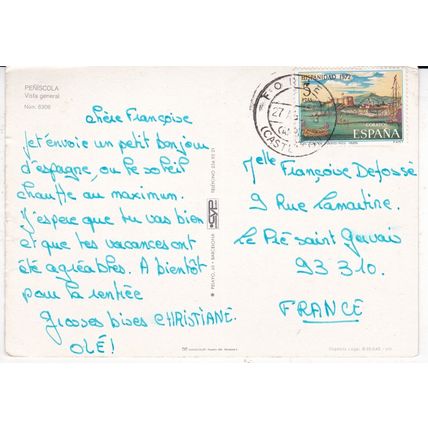 PEÑISCOLA
Vista general
Núm. 6306
HISPANIDAD 1972
CORREOS
ESPAÑA
chère Françoise
Je t'envoie un petit bonjour
d'espagne, ou le soleil
chauffe au maximum.
J'espère que tu vas bien
et que tes vacances ont
été agréables. A bientôt
pour la rentrée
Grosses bises CHRISTIANE.
OLÉ!
BARCELONA
Melle Françoise Defossé
9 Rue Lamartine.
Le Pré saint Gervais
93 310.
FRANCE